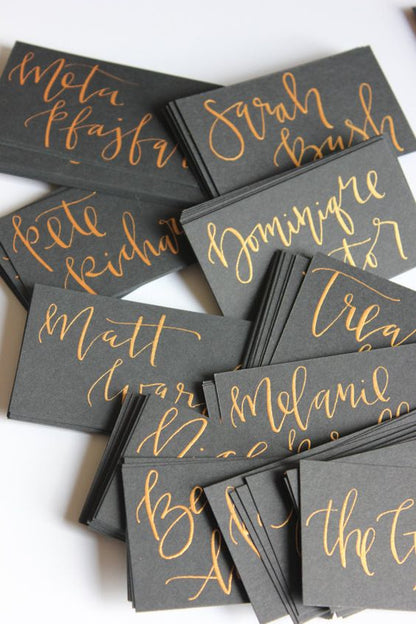 Meta
Pfajfa
Sarah
Bush
Pete
Richar
Dominique
tor
Matt
War
Trea
Melanie
Be
the G